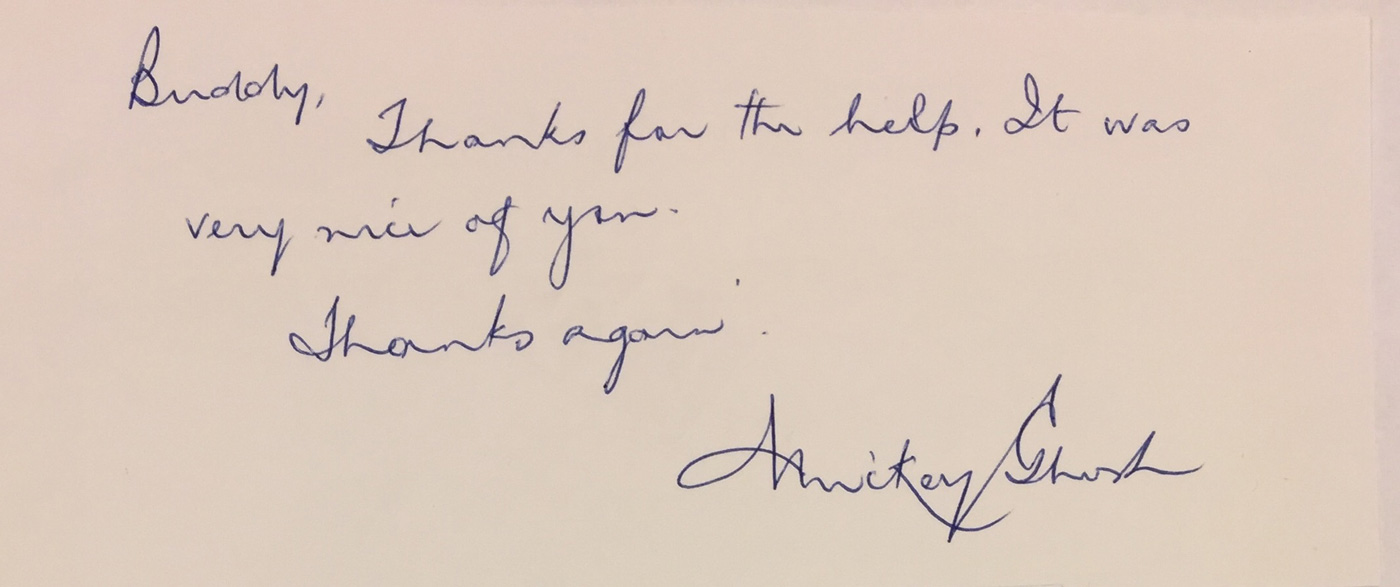 Buddy,
Thanks for the help. It was
very nice of you.
Thanks again.
Mickey Ghosh